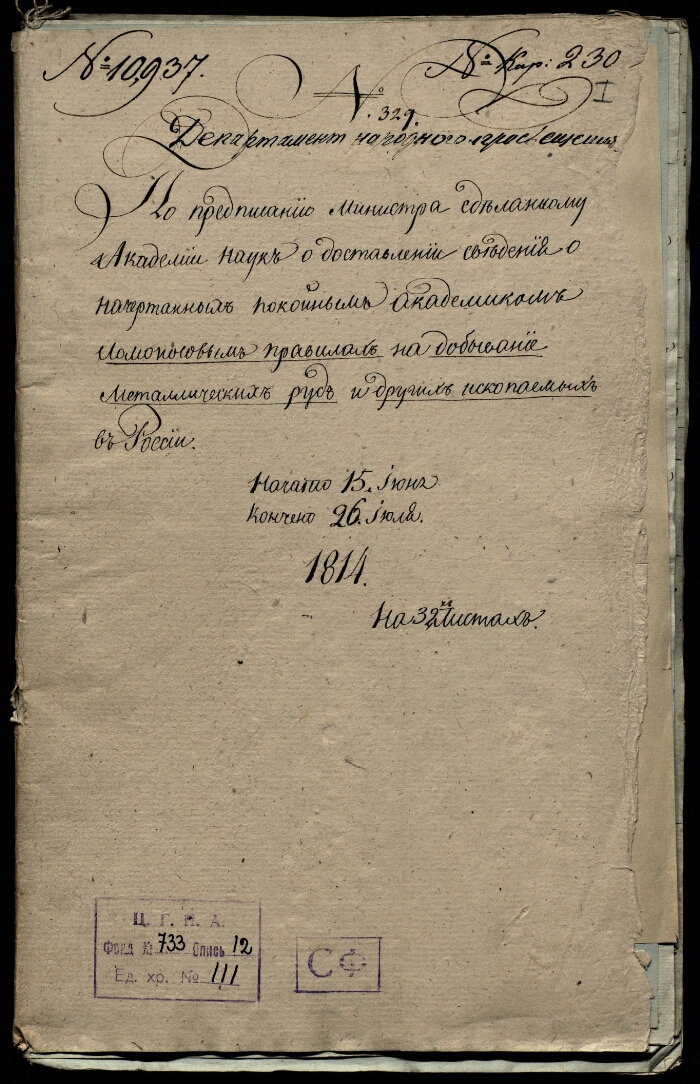 № 10,937.
№ Кар: 230
I
№ 329.
Департамент народного просвещения
По предписанію Министра сдѣланному
Академіи Наукъ о доставленіи свѣденія о
начертанныхъ покойнымъ Академикомъ
Ломоносовымъ правилахъ на добываніе
Металлическихъ рудъ и другихъ ископаемыхъ
въ Россіи.
Начато 15. Іюня
Кончено 26. Іюля.
1814.
На 32хъ листахъ.
Ц. Г. И. А.
Фонд № 733 Опись 12
Ед. хр. № 111
СФ